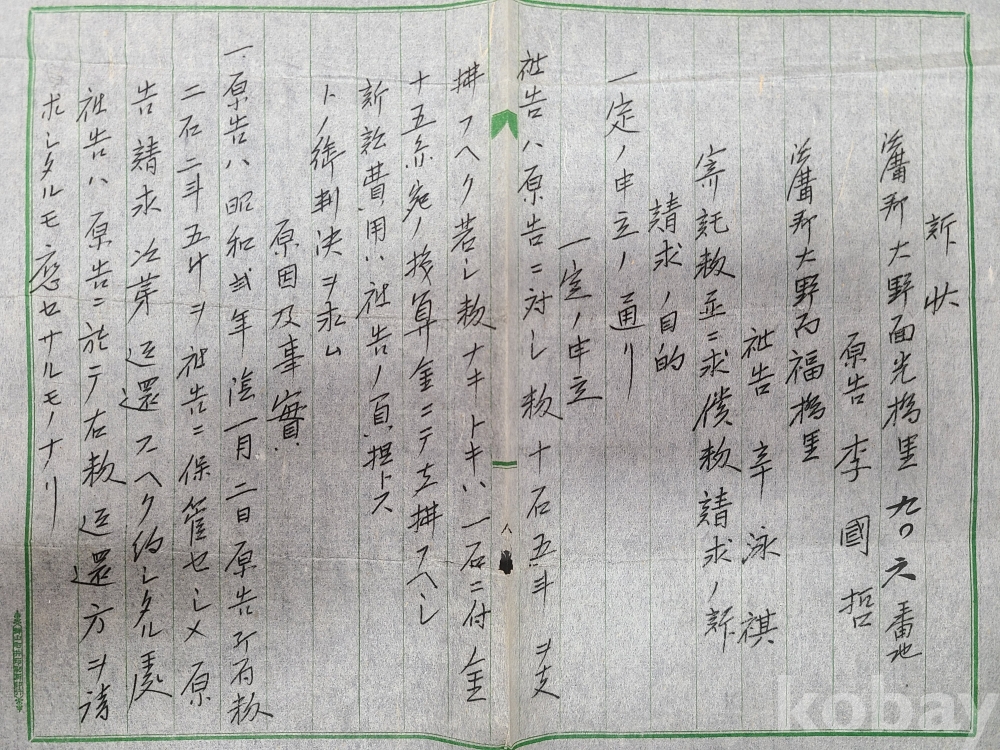 訴状
咸興郡大野面光橋里九〇六番地
原告 李國哲
咸興郡大野面福橋里
被告 辛泳祺
寄託籾並ニ求償籾請求ノ訴
請求ノ目的
一定ノ申立ノ通リ
一定ノ申立
被告ハ原告ニ対シ籾十石五斗ヲ支
拂フヘク若シ籾ナキトキハ一石ニ付金
十五糸宛ノ換算金ニテ支拂フヘシ
訴訟費用ハ被告ノ負担トス
トノ御判決ヲ求ム
原因及事實
一、原告ハ昭和弐年陰一月二日原告所有籾
二石二斗五升ヲ被告ニ保管セシメ原
告請求次第返還スヘク約シタル處
被告ハ原告ニ於テ右籾返還方ヲ請
求シタルモ應セサルモノナリ
八
kobay